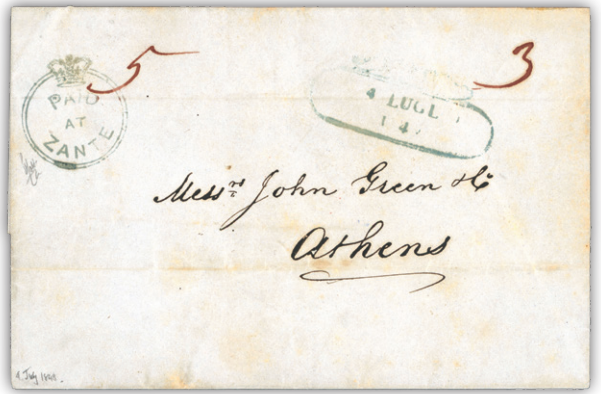 5
3
PAID
AT
ZANTE
4 LUGL
Mess.rs John Green & Co
Athens
4 July